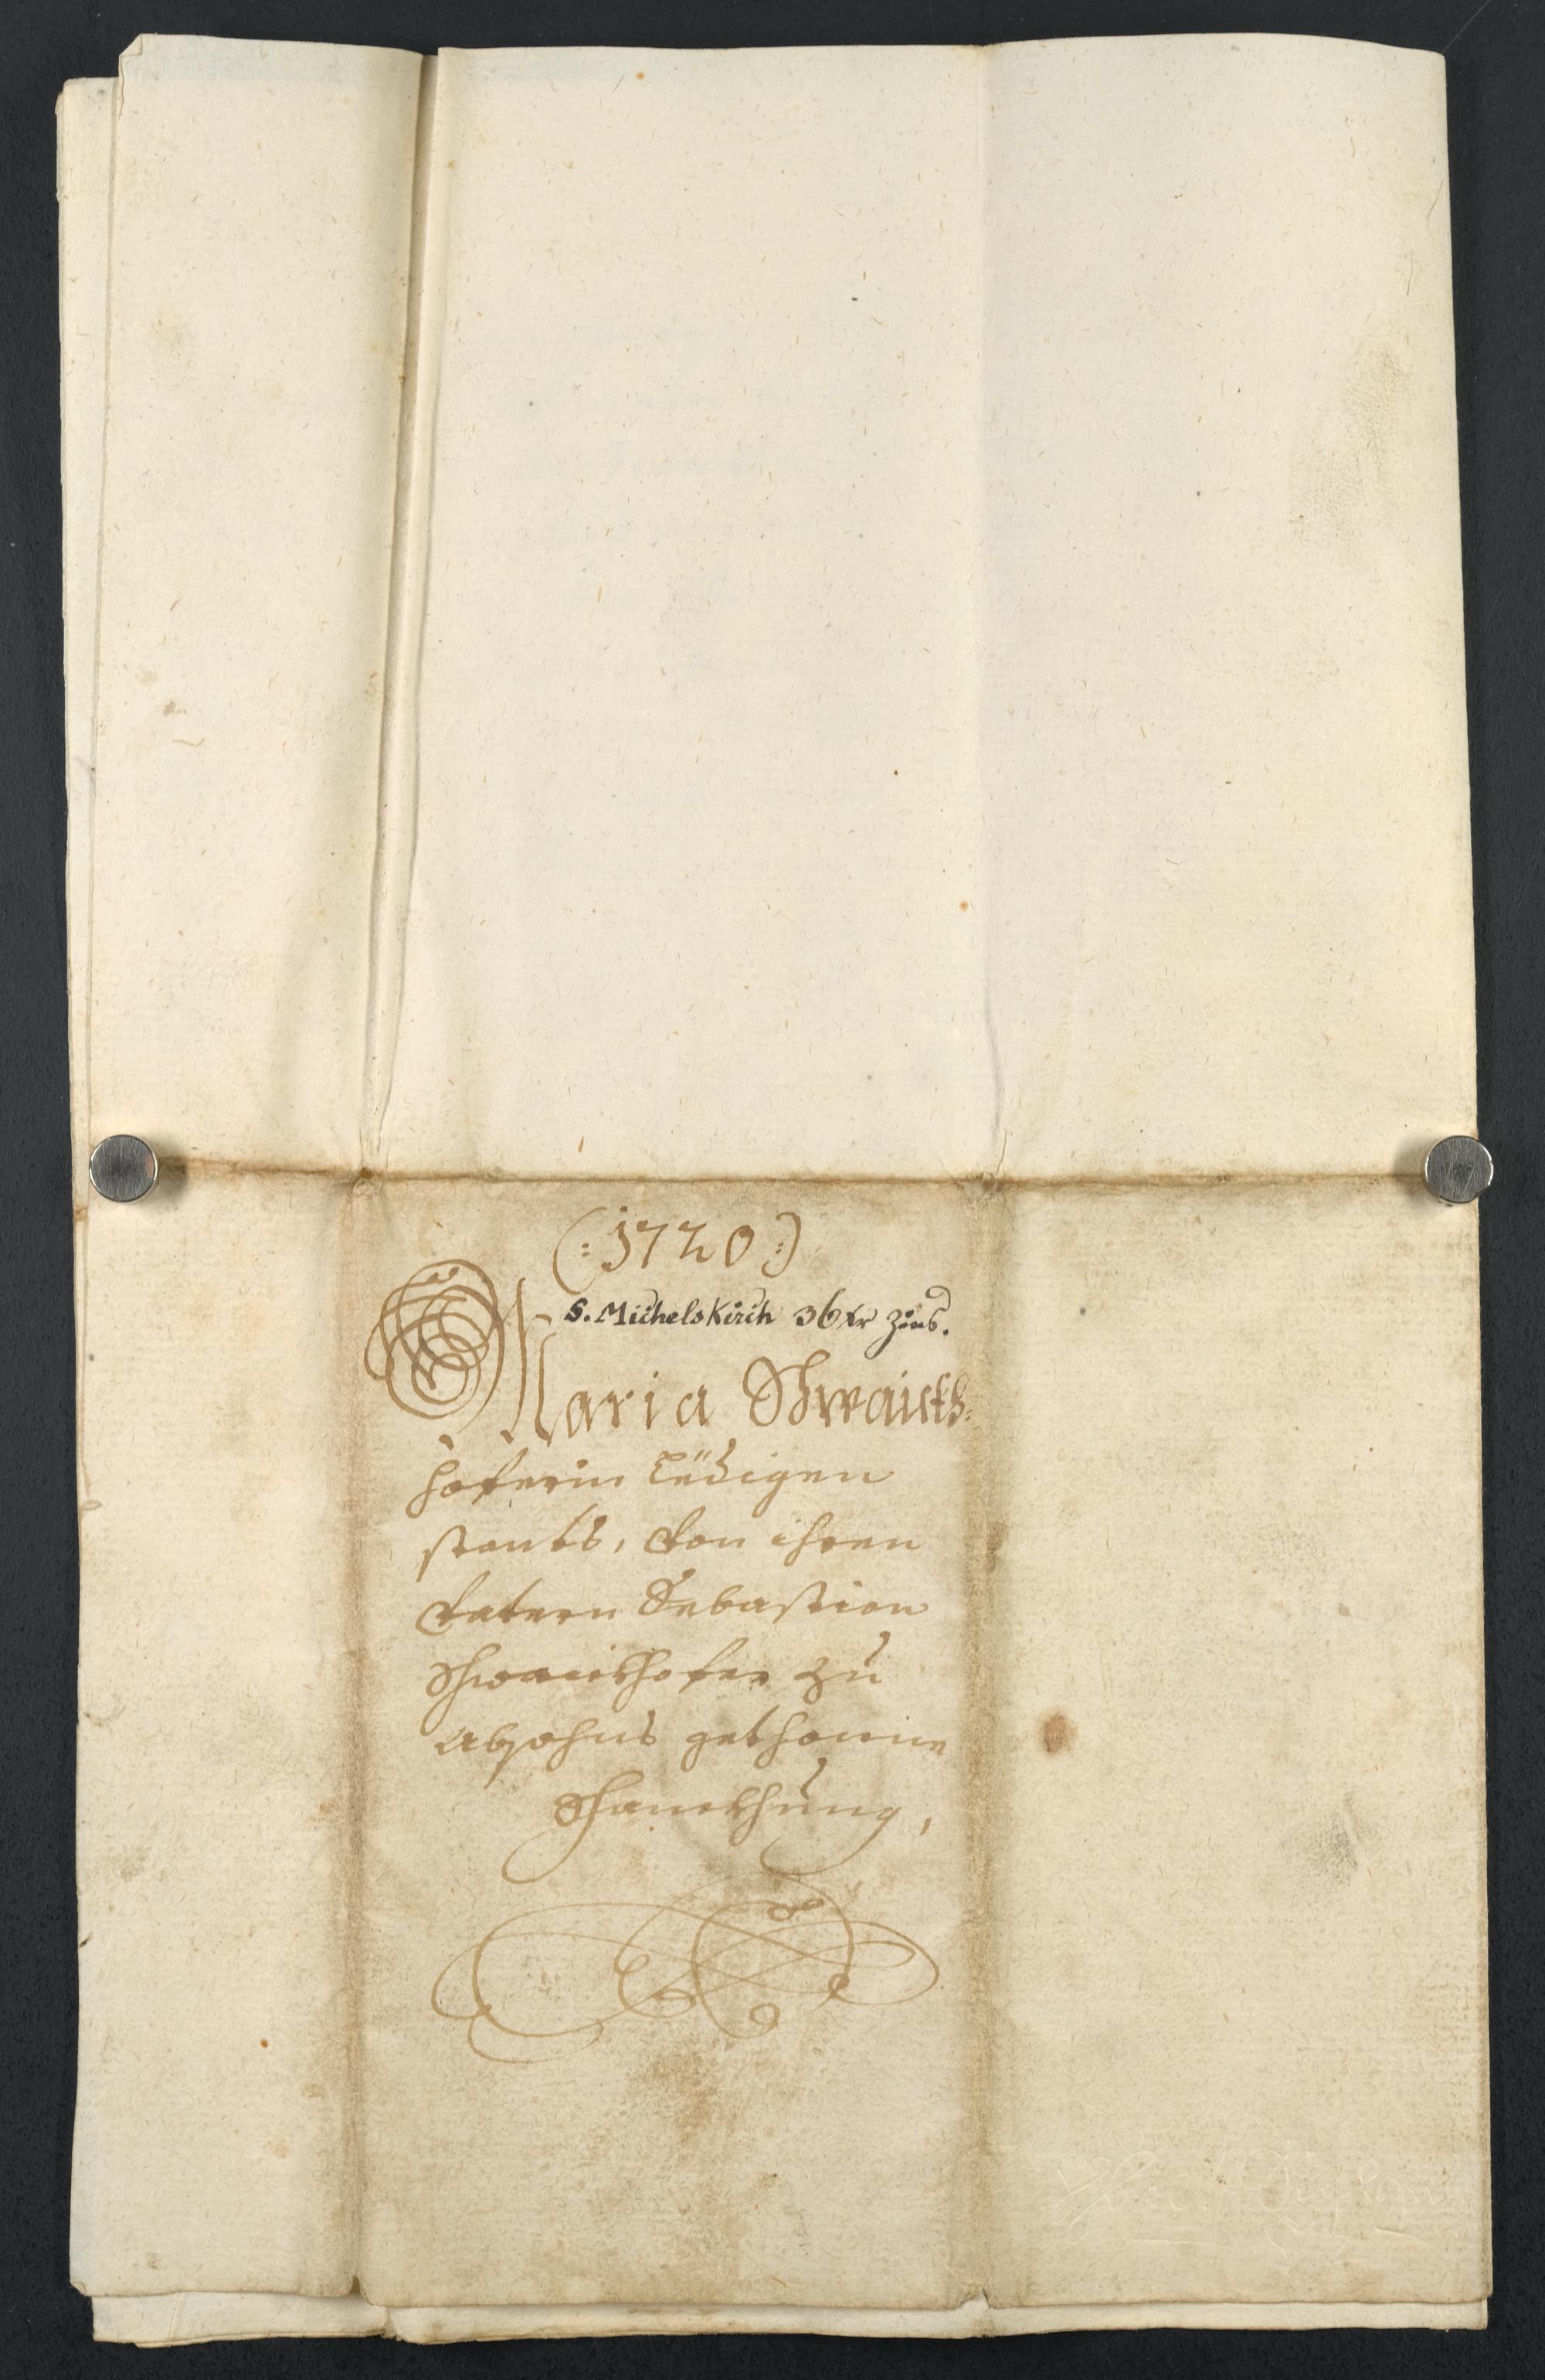 (: 1720 :)
S. Michelskirch 36 kr Zins.
Maria Schwaickh-
hoferin Ledigen
standts, von ihren
Vattern Sebastian
Schwaickhofer zu
gethonne
Schanckhung,